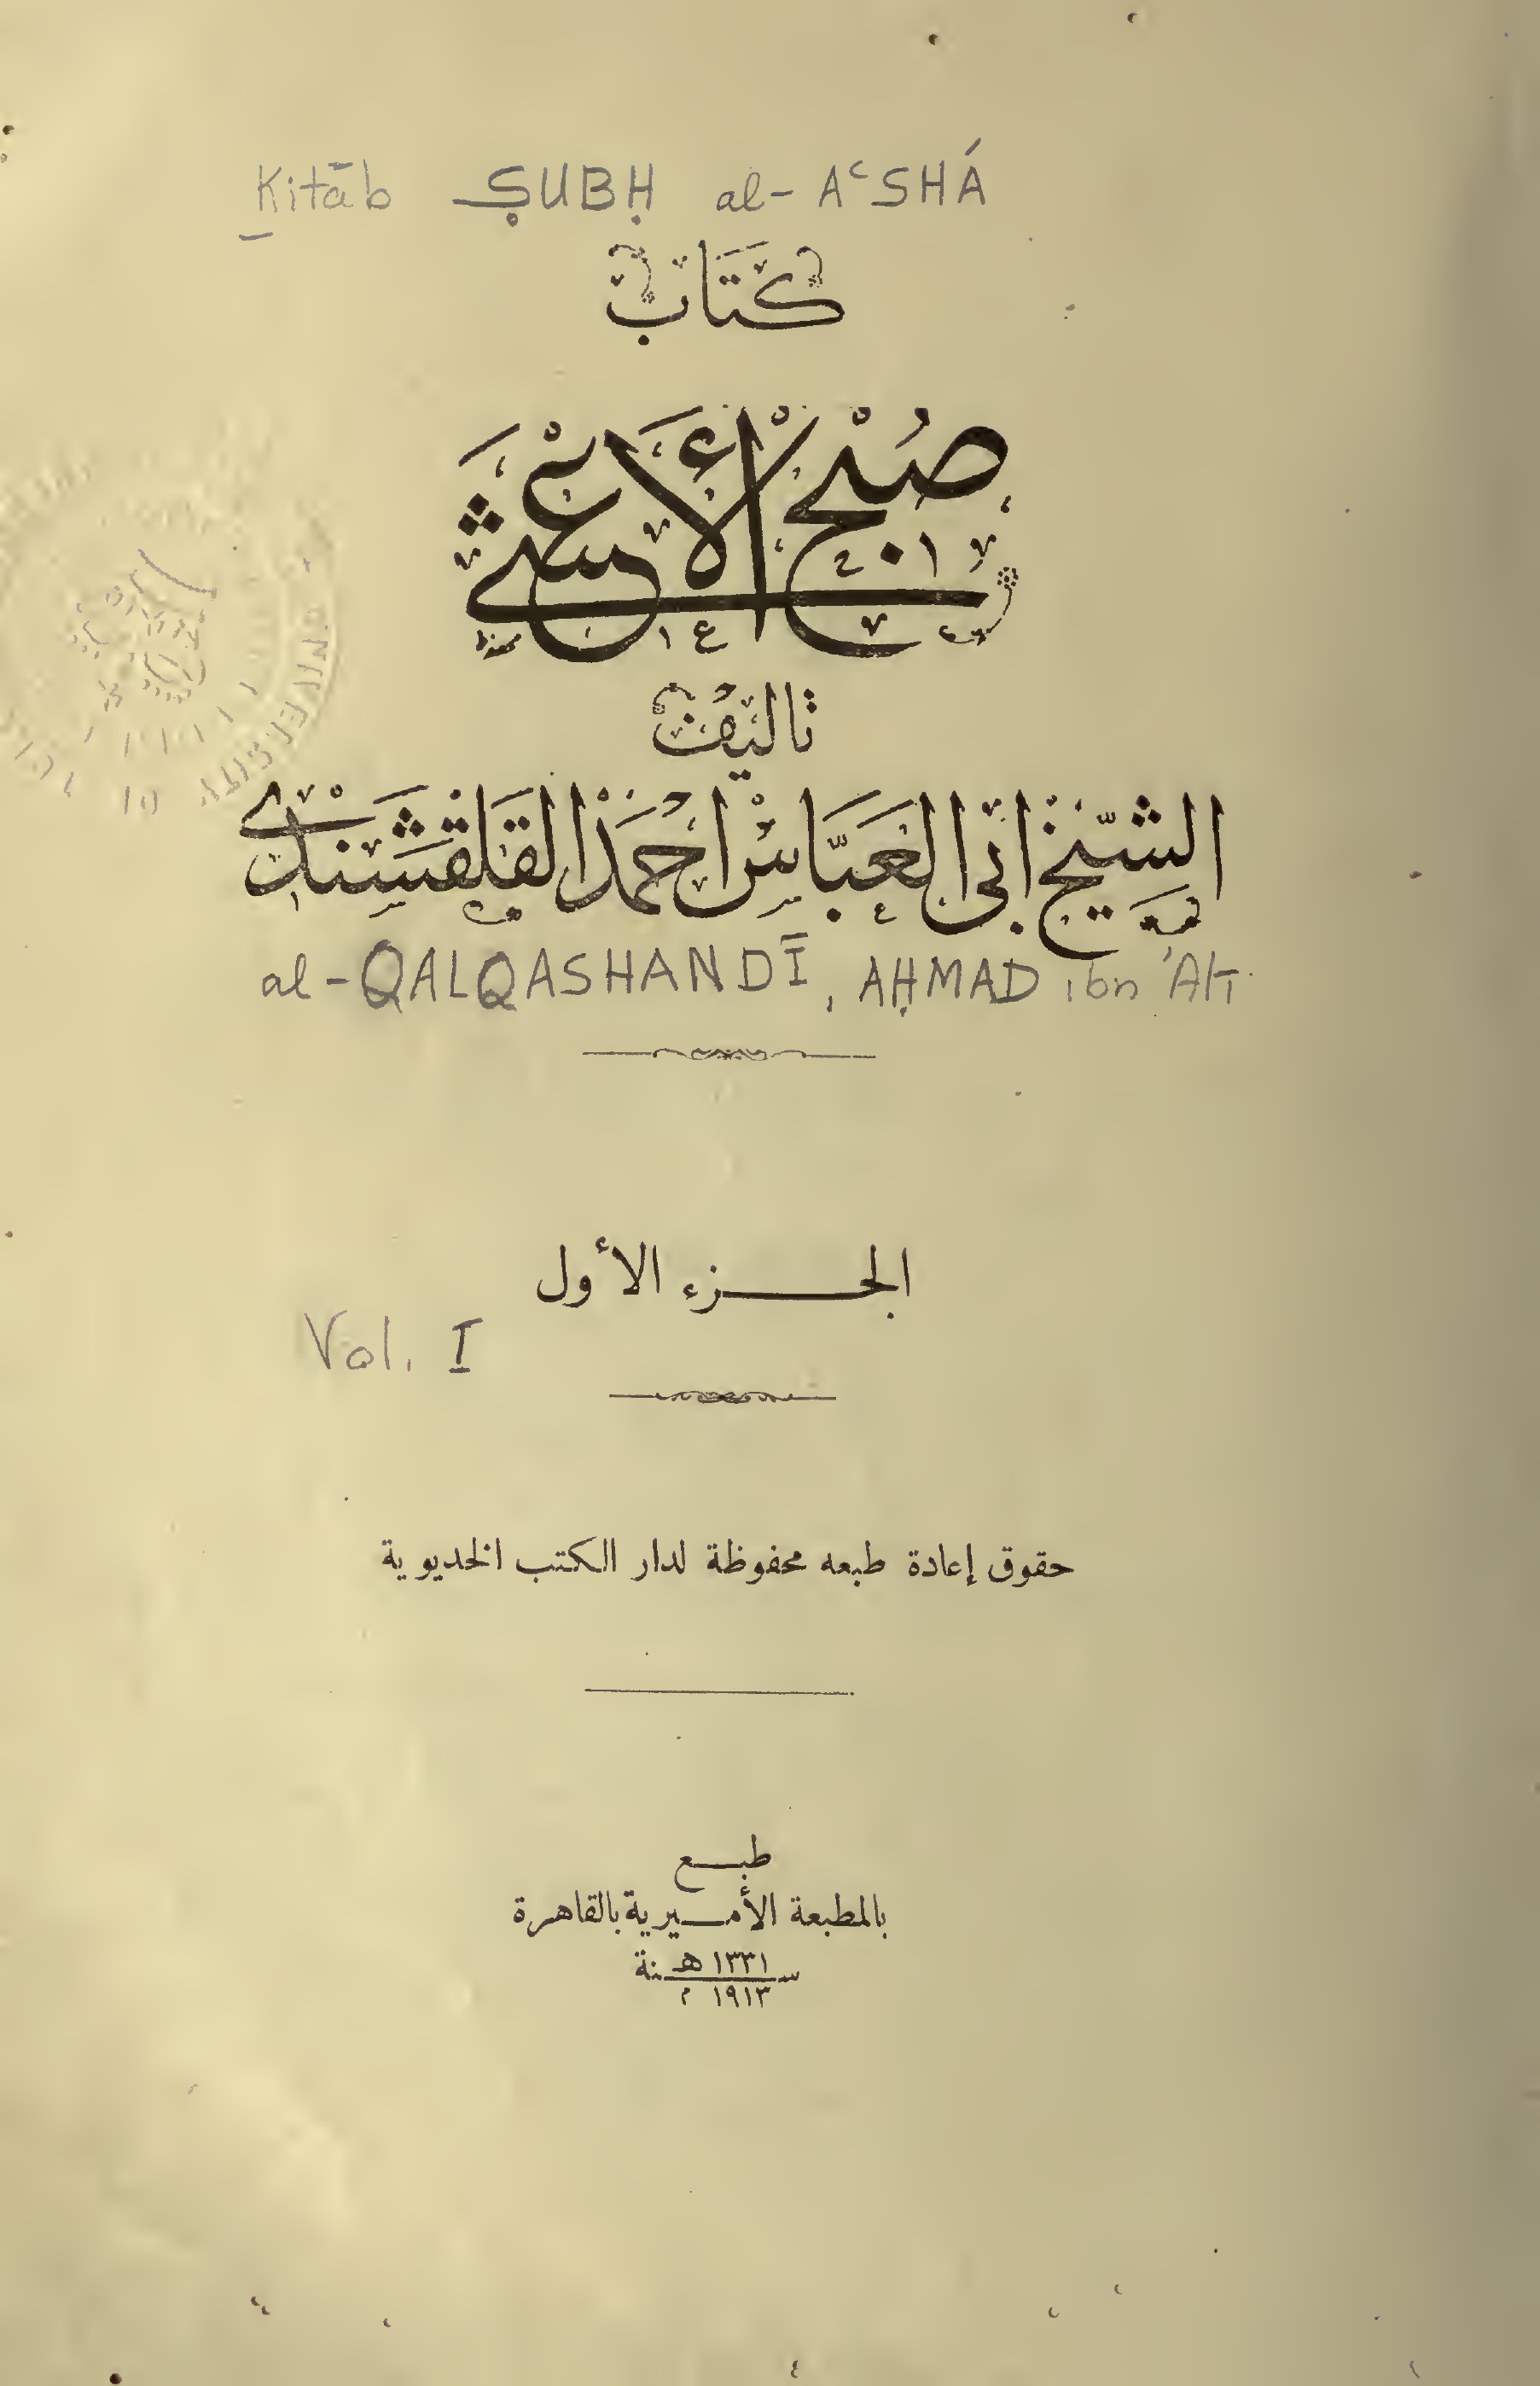 Kitāb ṢUBḤ al-AʿSHÁ
كتاب
صبح الأعشى
تأليف
الشيخ ابى العباس احمد القلقشندى
al-QALQASHANDĪ, AḤMAD ibn 'Alī
الجزء الأول
Vol. I
حقوق إعادة طبعه محفوظة لدار الكتب الخديوية
طبع
بالمطبعة الأميرية بالقاهرة
سنة ١٣٣١ هـ
١٩١٣ م